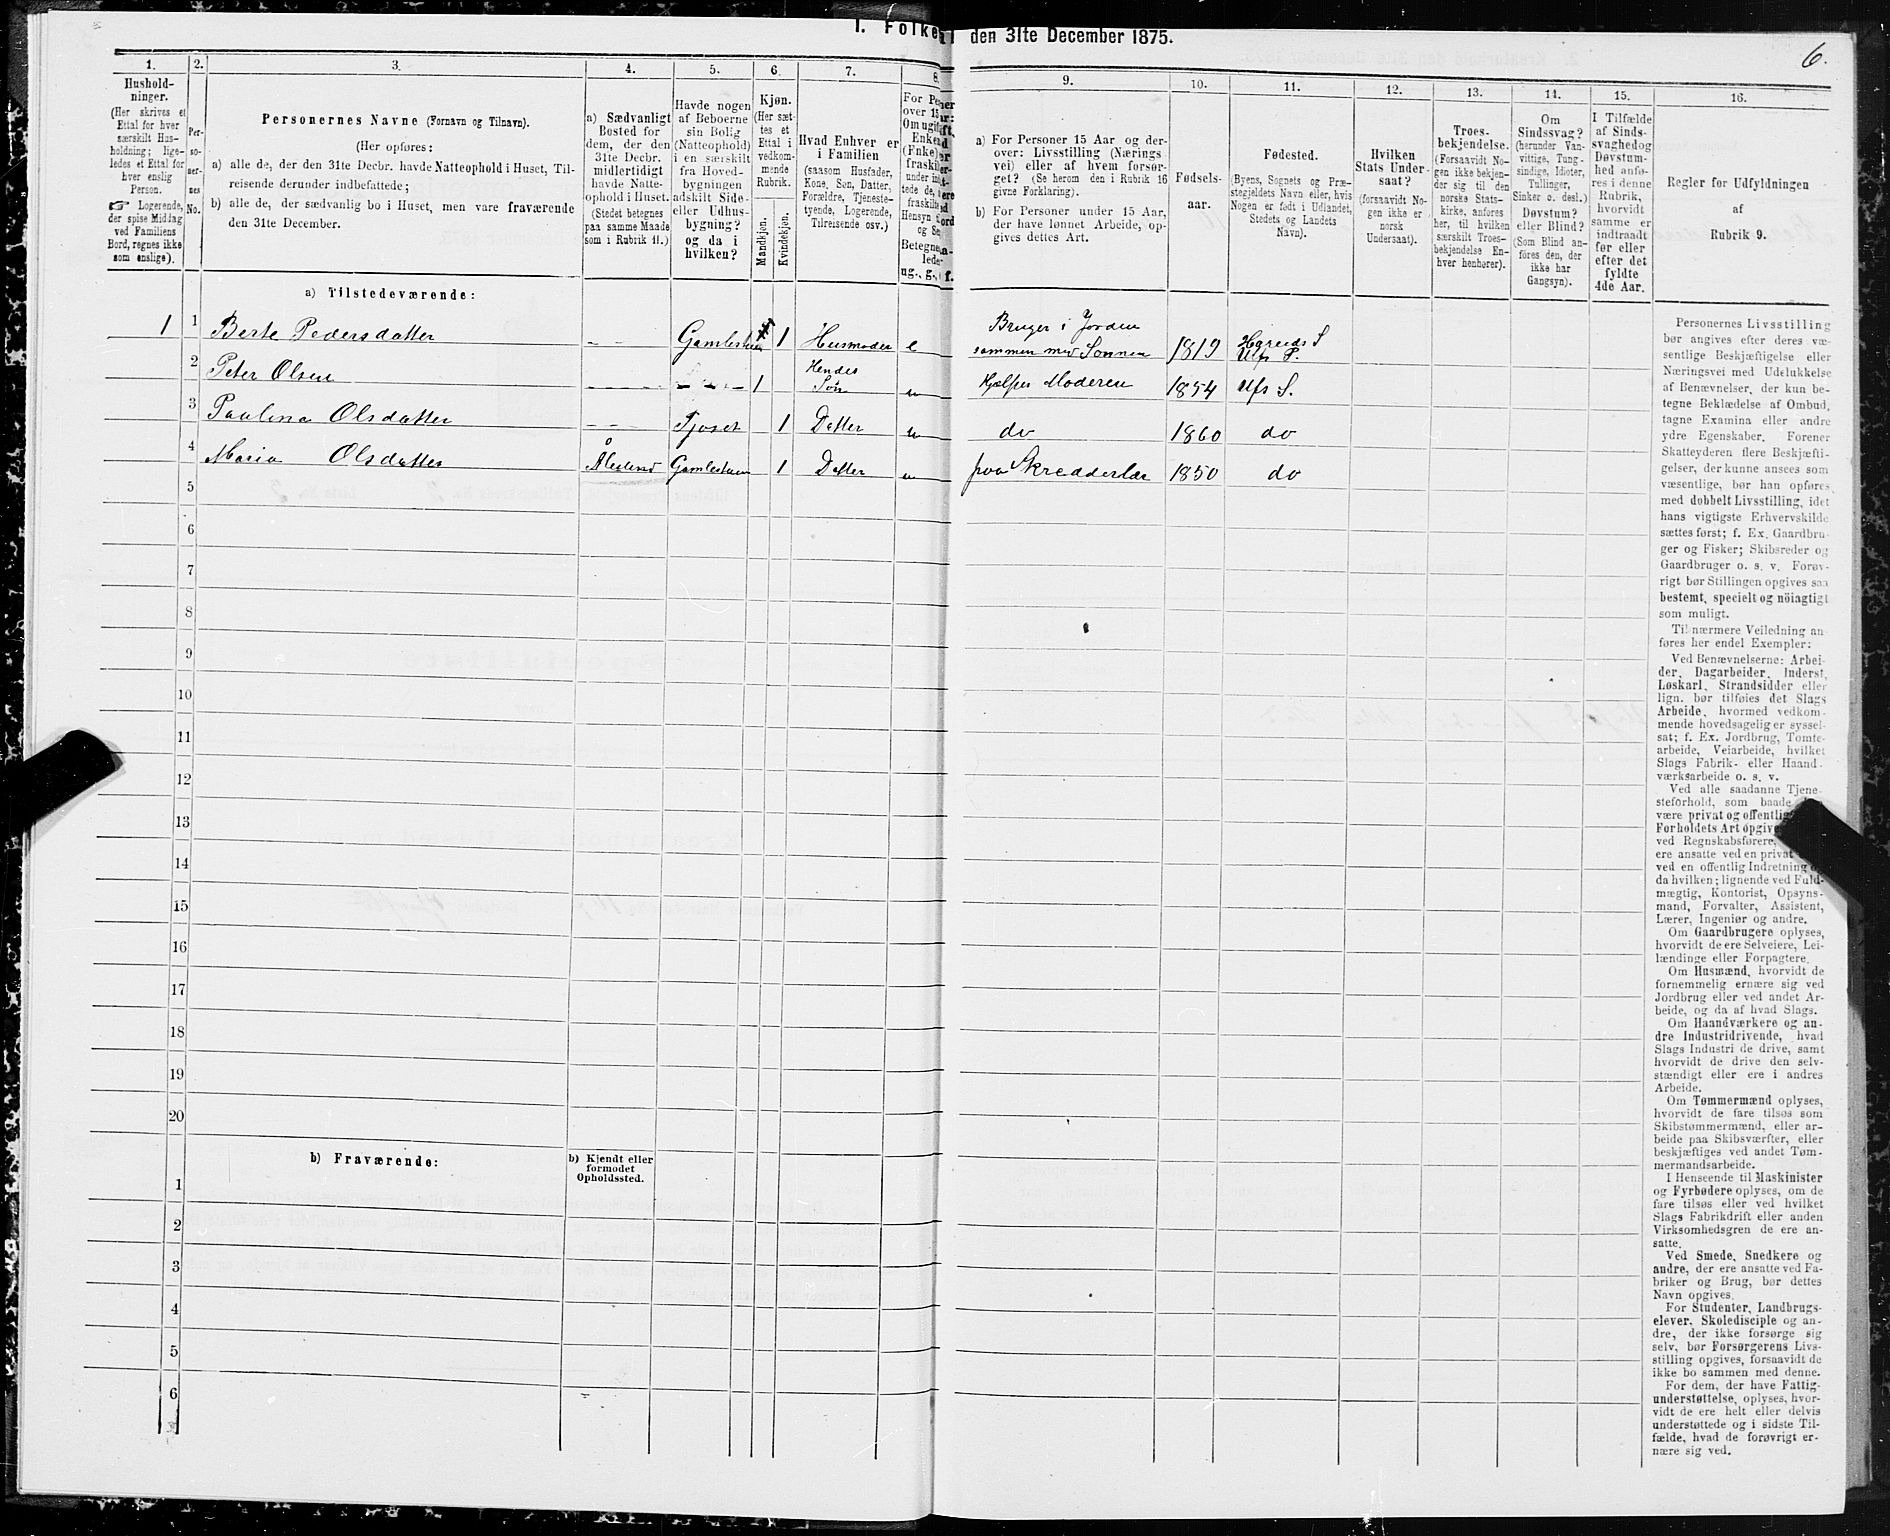 1. Folke
den 31te December 1875.
6.
1.
2.
3.
4.
5.
6.
7.
8.
9.
10.
11.
12.
13.
14.
15.
16.
Hushold-
ninger.
(Her skrives et
Ettal for hver
særskilt Hus-
holdning; lige-
ledes et Ettal for
hver enslig
Person.
☞ Logerende,
der spise Middag
ved Familiens
Bord, regnes ikke
som enslige).
Per-
so-
ner-
nes
No.
Personernes Navne (Fornavn og Tilnavn).
(Her opføres:
a) alle de, der den 31te Decbr. havde Natteophold i Huset, Til-
reisende derunder indbefattede;
b) alle de, der sædvanlig bo i Huset, men vare fraværende
den 31te December.
a) Sædvanligt
Bosted for
dem, der den
31te Decbr.
midlertidigt
havde Natte-
ophold i Huset.
(Stedet betegnes
paa samme Maade
som i Rubrik 11.)
Havde nogen
af Beboerne
sin Bolig
(Natteophold)
i en særskilt
fra Hoved-
bygningen
adskilt Side-
eller Udhus-
bygning?
og da i
hvilken?
Kjøn.
(Her sæt-
tes et
Ettal i
vedkom-
mende
Rubrik.
Mandkjøn.
Kvindekjøn.
Hvad Enhver er
i Familien
(saasom Husfader,
Kone, Søn, Datter,
Forældre, Tjeneste-
tyende, Logerende,
Tilreisende osv.)
a) For Personer 15 Aar og der-
over: Livsstilling (Nærings
vei) eller af hvem forsør-
get? (Se herom den i Rubrik 16
givne Forklaring).
b) For Personer under 15 Aar,
der have lønnet Arbeide, op-
gives dettes Art.
Fødsels-
aar.
Fødested.
(Byens, Sognets og Præ-
stegjeldets Navn eller, hvis
Nogen er født i Udlandet,
Stedets og Landets
Navn).
Hvilken
Stats Under-
saat?
(forsaavidt No-
gen ikke er
norsk
Undersaat).
Troes-
bekjendelse.
(Forsaavidt No-
gen ikke bekjen-
der sig til den
norske Stats-
kirke, anføres
her, til hvilken
særskilt Troes-
bekjendelse En-
hver henhører).
Om
Sindssvag?
(herunder Van-
vittige, Tung-
sindige, Idioter,
Tullinger,
Sinker o. desl.)
Døvstum?
eller Blind?
(Som Blind an-
føres den, der
ikke har
Gangsyn).
I Tilfælde
af Sinds-
svaghed og
Døvstum-
hed anfø-
res i denne
Rubrik,
hvorvidt
samme er
indtraadt
før eller
efter det
fyldte
4de Aar.
Regler for Udfyldningen
af
Rubrik 9.
a) Tilstedeværende:
1 1 Berte Pedersdatter - - Gamlestuen 1 Husmoder e Bruger i Jorden
sammen med Sønnen 1819 Hareids S
Ulfs P.
2 Peter Olsen - - - - - - - 1 Hendes
Søn u Hjælper Moderen 1854 Ulfs S.
3 Paulina Olsdatter - - - Fjøset 1 Datter u do 1860 do
4 Maria Olsdatter Ålesund Gamlestuen 1 Datter u paa Skrædderlær 1850 do
5
6
7
8
9
10
11
12
13
14
15
16
17
18
19
20
b) Fraværende:
b) Kjendt eller
formodet
Opholdssted.
1
2
3
4
5
6
Personernes Livsstilling
bør angives efter deres væ-
sentlige Beskjæftigelse eller
Næringsvei med Udelukkelse
af Benævnelser, der kun be-
tegne Beklædelse af Ombud,
tagne Examina eller andre
ydre Egenskaber. Forener
Skatteyderen flere Beskjæfti-
gelser, der kunne ansees som
væsentlige, bør han opføres
med dobbelt Livsstilling, idet
hans vigtigste Erhvervskilde
sættes først; f. Ex. Gaardbru-
ger og Fisker; Skibsreder og
Gaardbruger o. s. v. Forøv-
rigt bør Stillingen opgives saa
bestemt, specielt og nöiagtigt
som muligt.
Til nærmere Veiledning an-
føres her endel Exempler:
Ved Benævnelserne: Arbei-
der, Dagarbeider, Inderst,
Løskarl, Strandsidder eller
lign. bør tilføies det Slags
Arbeide, hvormed vedkom-
mende hovedsagelig er syssel-
sat; f. Ex. Jordbrug, Tomte-
arbeide, Veiarbeide, hvilket
Slags Fabrik- eller Haand-
værksarbeide o. s. v.
Ved alle saadanne Tjene-
steforhold, som baade
være privat og offentlig
Forholdets Art opgiv
ved Regnskabsførere,
ere ansatte ved en privat
ved en offentlig Indretning
da hvilken; lignende ved Fuld-
mægtig, Kontorist, Opsyns-
mand, Forvalter, Assistent,
Lærer, Ingeniør og andre.
Om Gaardbrugere oplyses,
hvorvidt de ere Selveiere, Lei-
lændinge eller Forpagtere.
Om Husmænd, hvorvidt de
fornemmelig ernære sig ved
Jordbrug eller ved andet Ar-
beide, og da af hvad Slags.
Om Haandværkere og an-
dre Industridrivende, hvad
Slags Industri de drive, samt
hvorvidt de drive den selv-
stændigt eller ere i andres
Arbeide.
Om Tømmermænd oplyses,
hvorvidt de fare tilsøs som
Skibstømmermænd, eller ar-
beide paa Skibsværfter, eller
beskjæftiges ved andet Tøm-
mermandsarbeide.
I Henseende til Maskinister
og Fyrbødere oplyses, om de
fare tilsøs eller ved hvilket
Slags Fabrikdrift eller anden
Virksomhedsgren de ere an-
satte.
Ved Smede, Snedkere og
andre, der ere ansatte ved Fa-
briker og Brug, bør dettes
Navn opgives.
For Studenter, Landbrugs-
elever, Skoledisciple og an-
dre, der ikke forsørge sig
selv, bør Forsørgerens Livs-
stilling opgives, forsaavidt de
ikke bo sammen med denne.
For dem, der have Fattig-
understøttelse, oplyses, hvor-
vidt de ere helt eller delvis
understøttede og i sidste Til-
fælde, hvad de forøvrigt er-
nære sig ved.